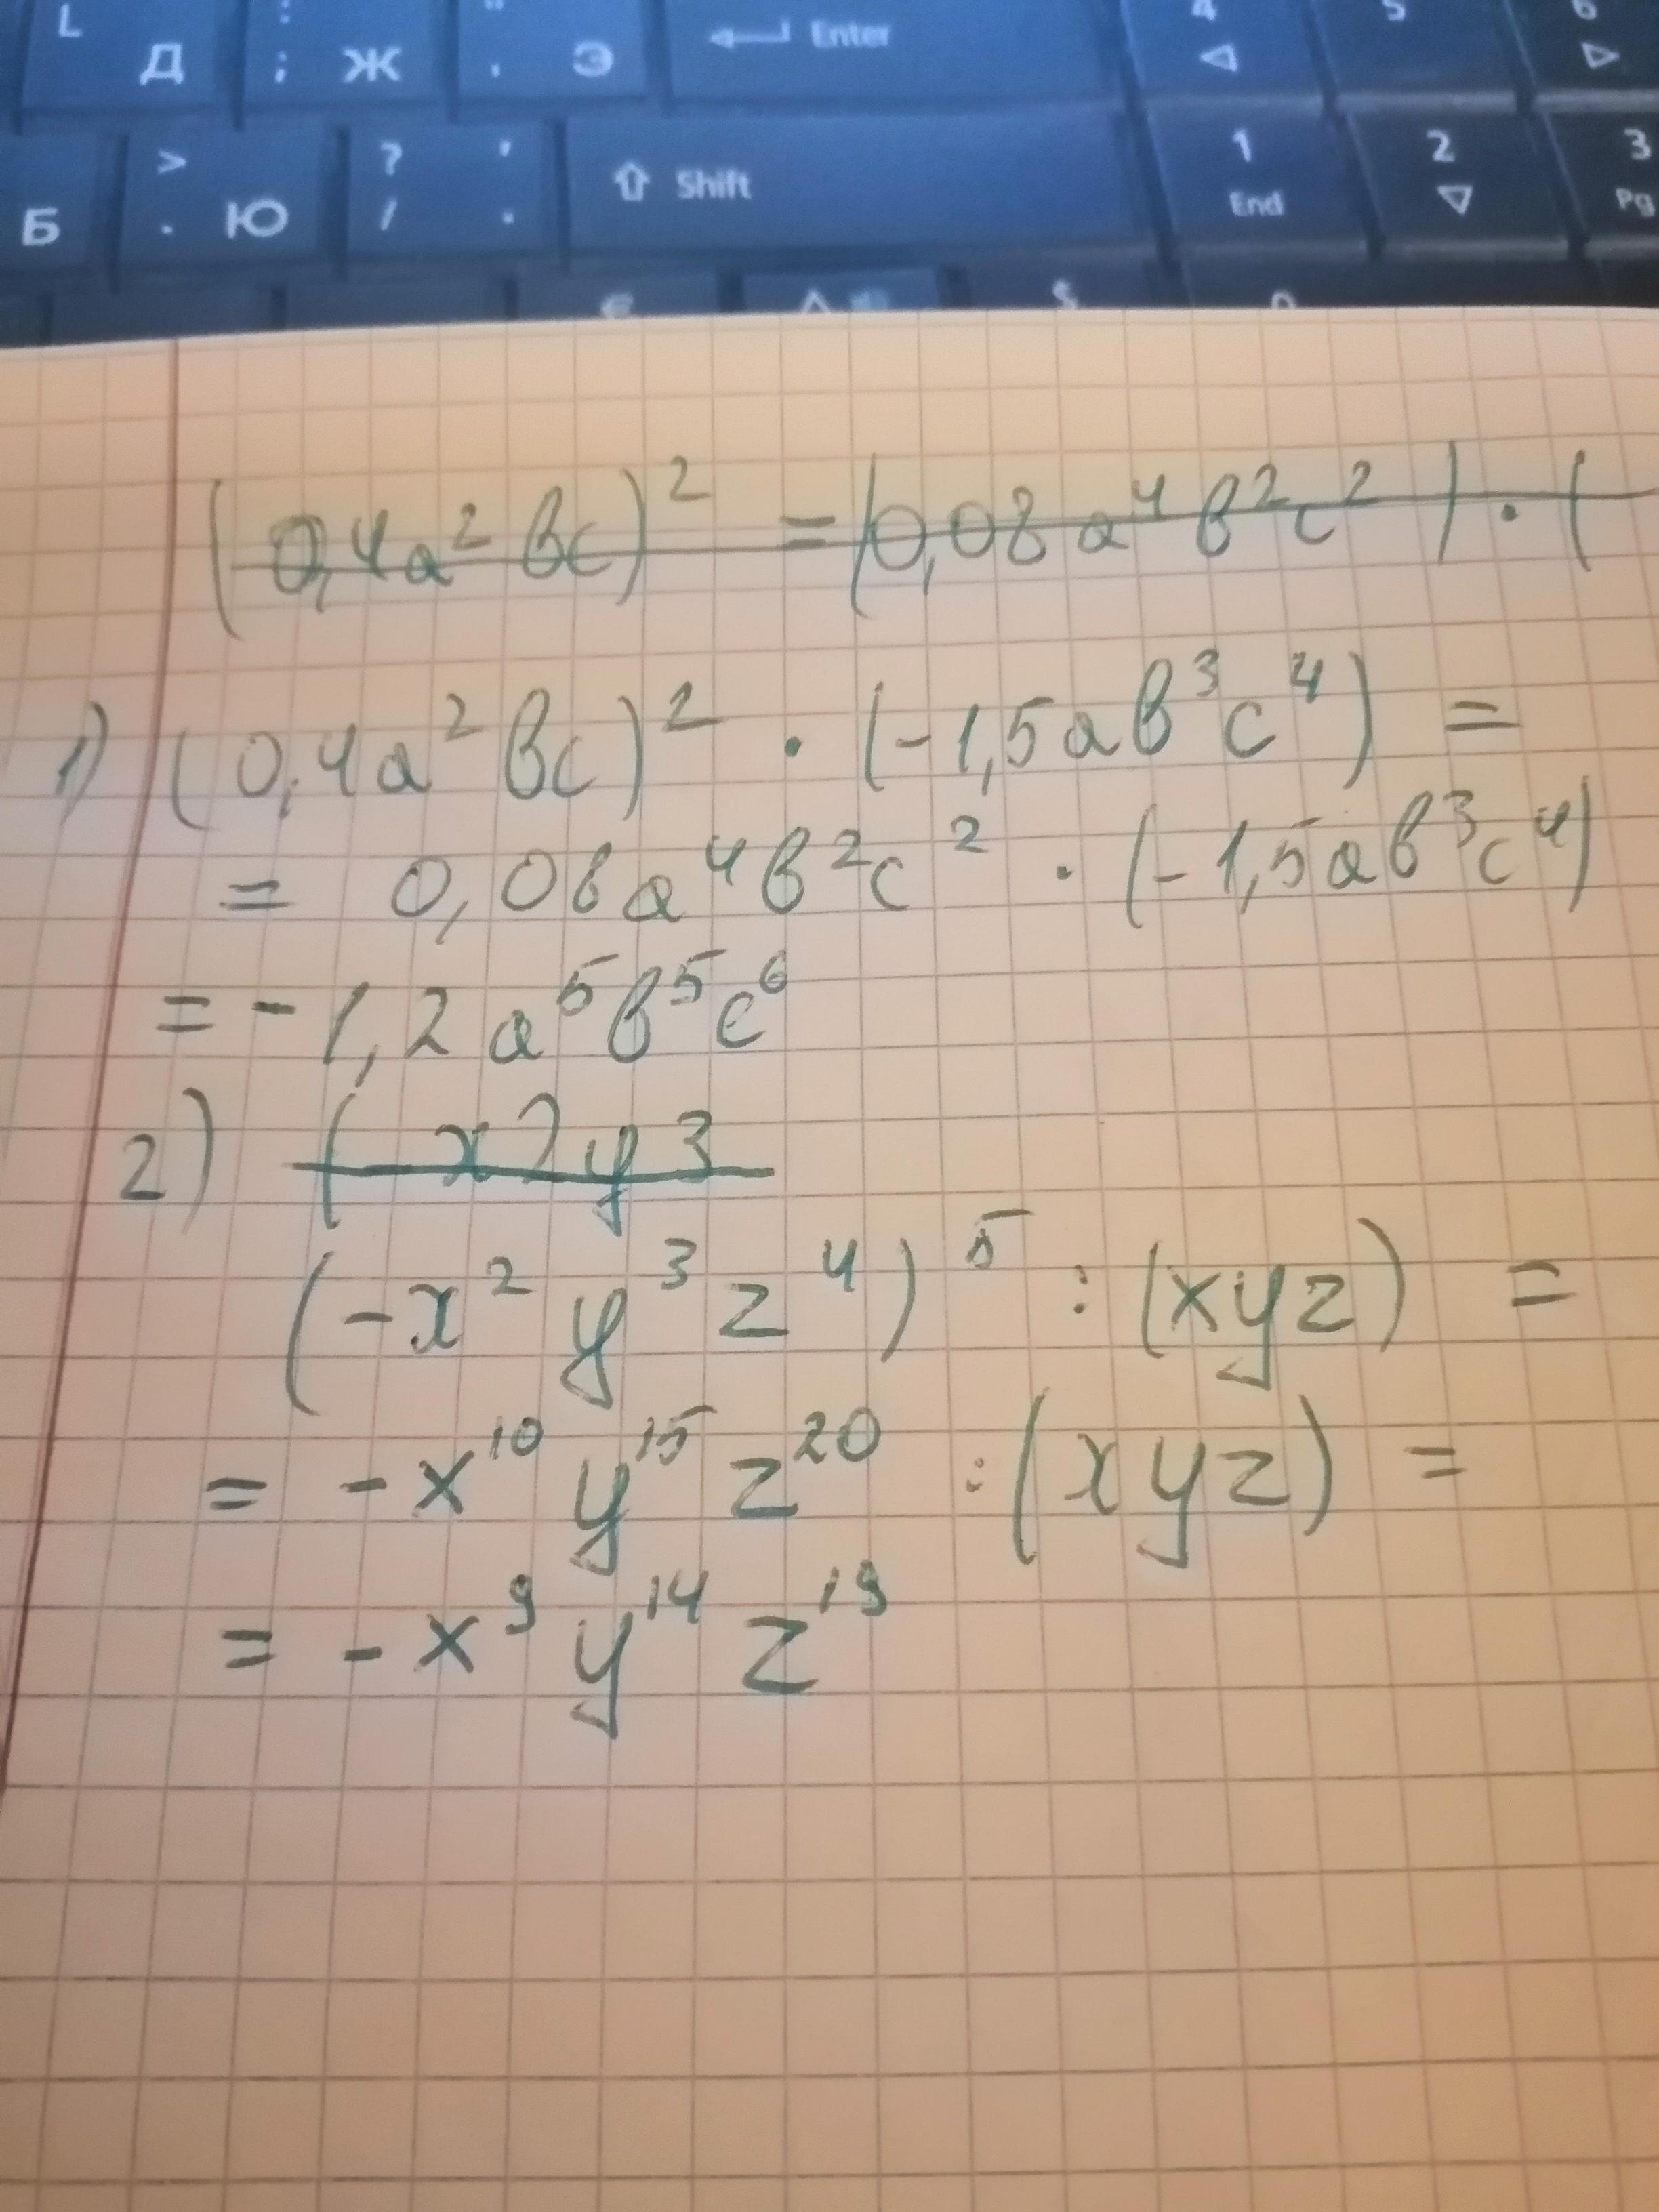 L Д : ; Ж " ' Э Enter 4 5 6
Б > . Ю ? / , . Shift 1 End 2 3 Pg
(0,4a²bc)² = (0,08a⁴b²c²) · (
1) (0,4a²bc)² · (-1,5ab³c⁴) =
= 0,08a⁴b²c² · (-1,5ab³c⁴)
= -1,2a⁵b⁵c⁶
2) (-x2y3
(-x²y³z⁴)⁵ : (xyz) =
= -x¹⁰y¹⁵z²⁰ : (xyz) =
= -x⁹y¹⁴z¹⁹